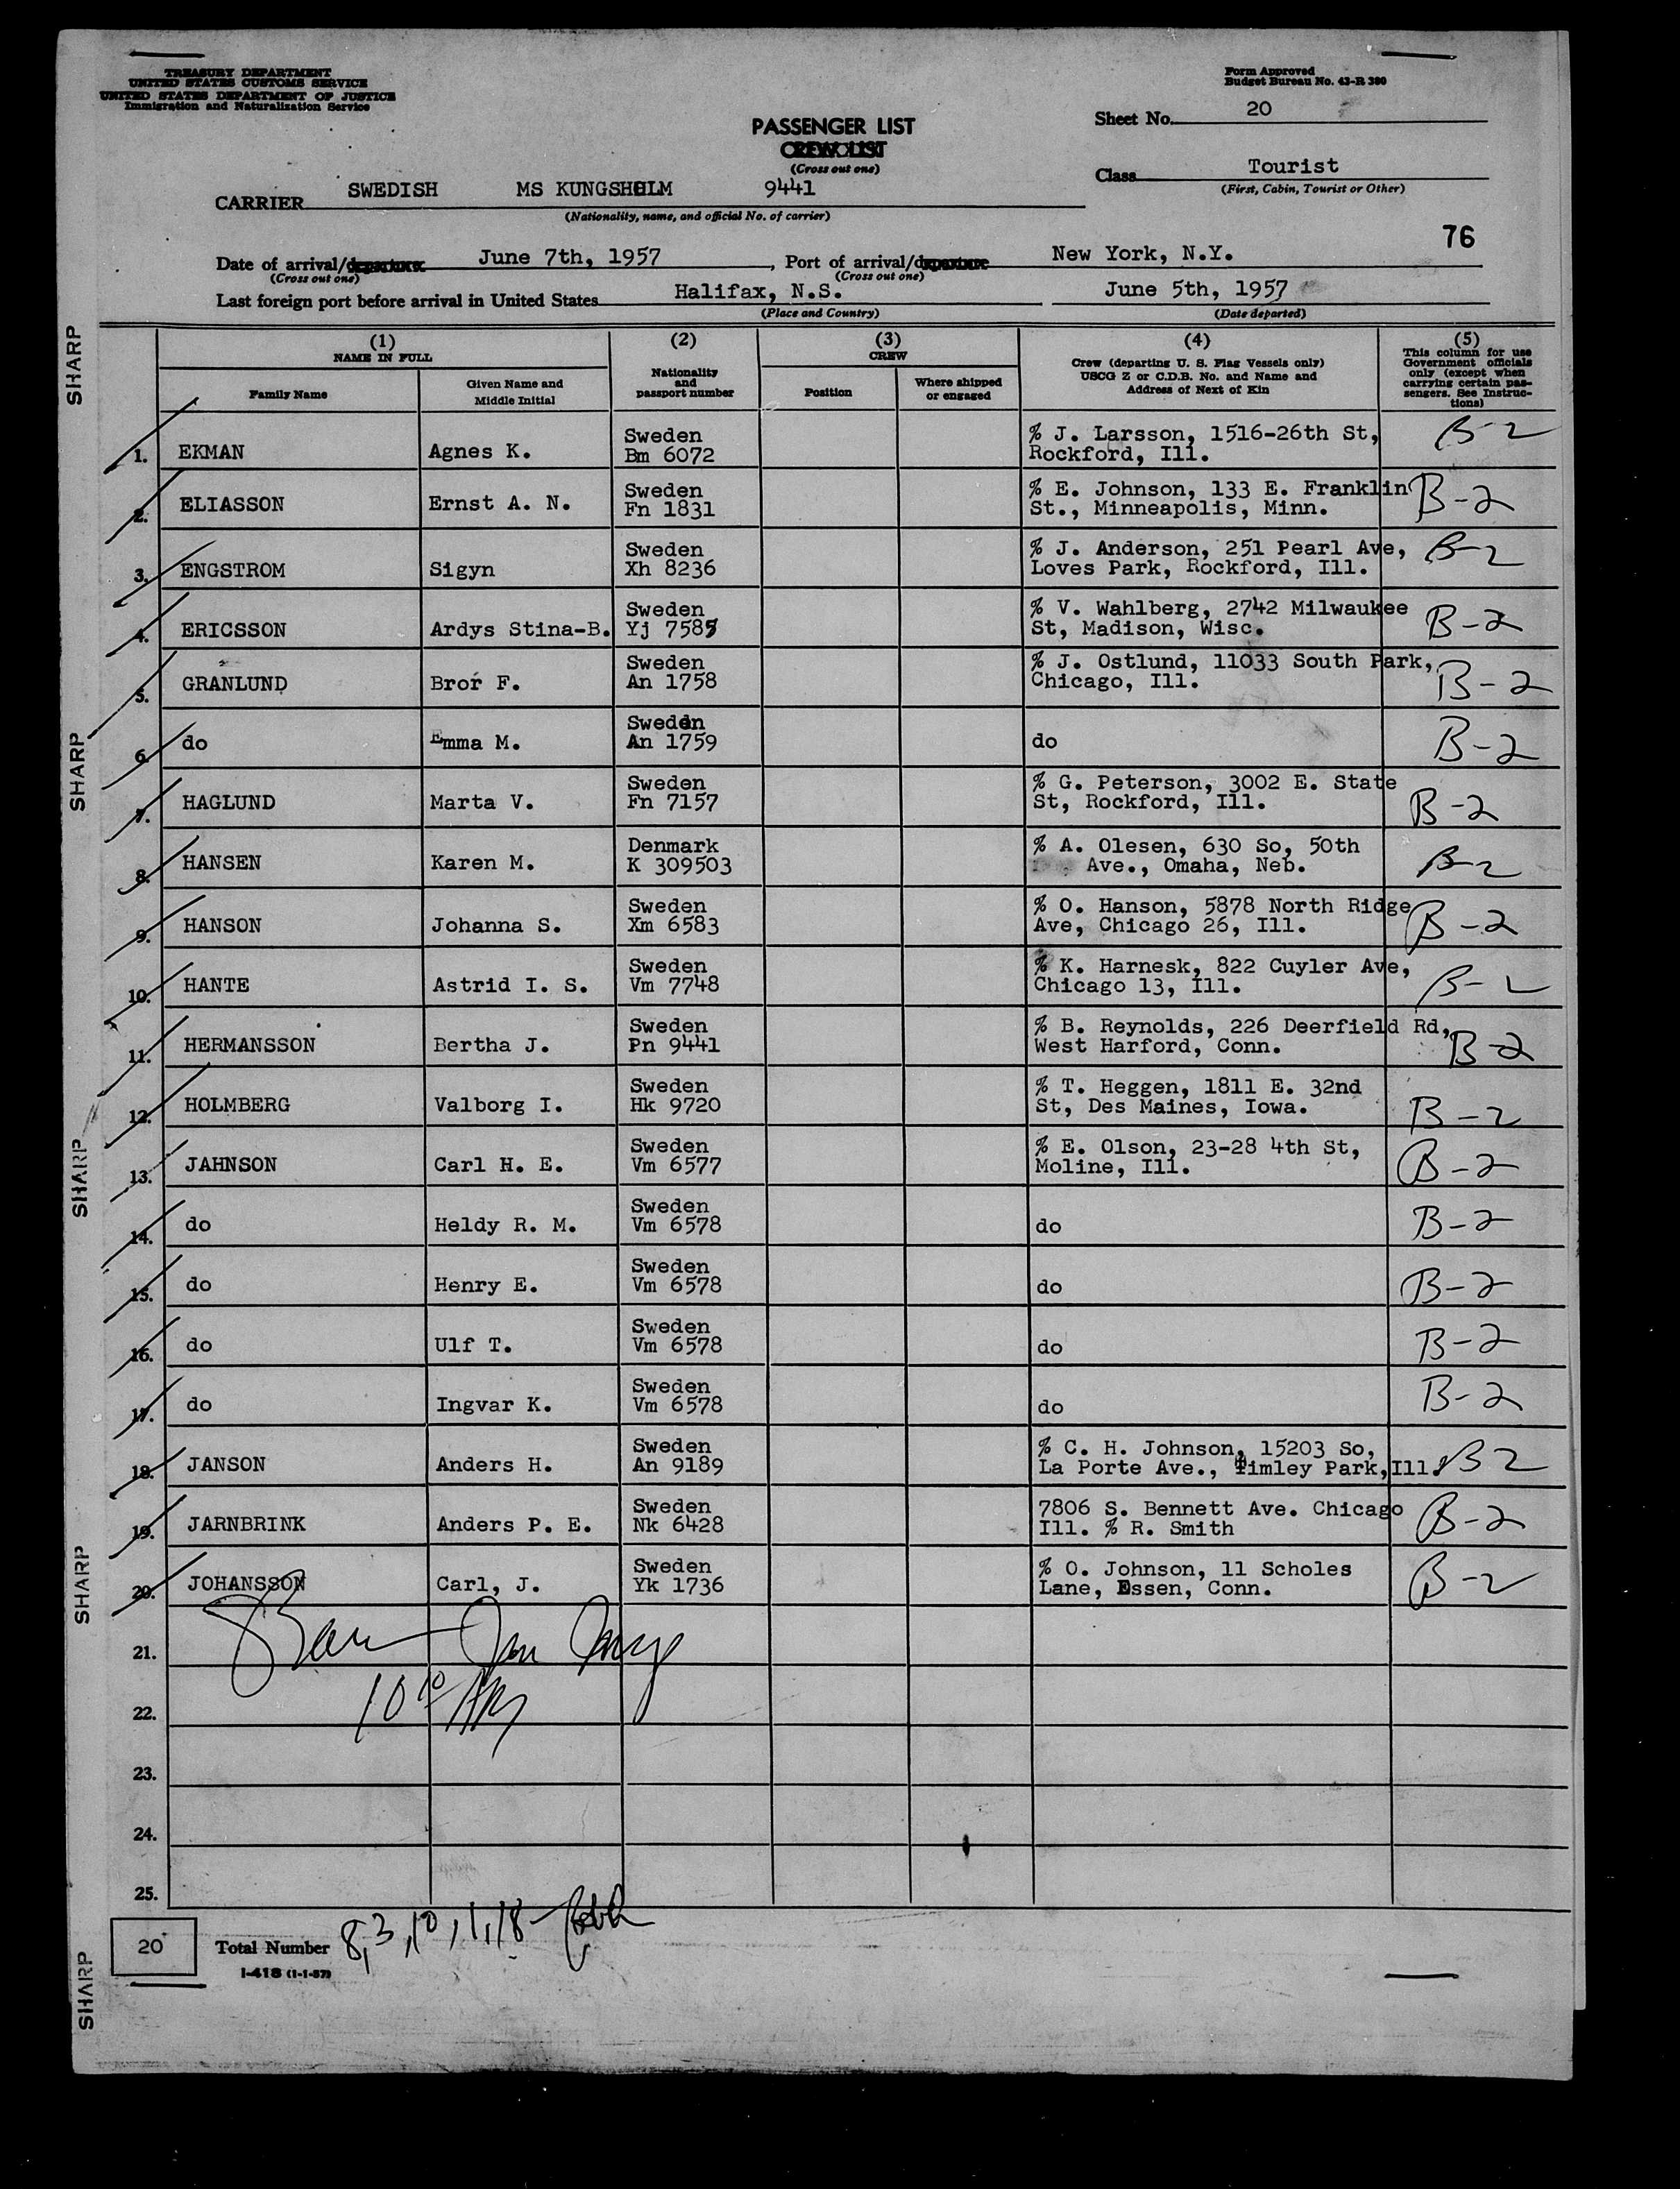 TREASURY DEPARTMENT
UNITED STATES CUSTOMS SERVICE
UNITED STATES DEPARTMENT OF JUSTICE
Immigration and Naturalization Service
Form Approved
Budget Bureau No. 43-R 380
Sheet No. 20
PASSENGER LIST
CREW LIST
(Cross out one)
Class Tourist
(First, Cabin, Tourist or Other)
CARRIER SWEDISH MS KUNGSHOLM 9441
(Nationality, name, and official No. of carrier)
76
Date of arrival/departure June 7th, 1957, Port of arrival/departure New York, N.Y.
(Cross out one) (Cross out one)
Last foreign port before arrival in United States Halifax, N.S. June 5th, 1957
(Place and Country) (Date departed)
(1) NAME IN FULL
Family Name
Given Name and Middle Initial
(2) Nationality and passport number
(3) CREW
Position
Where shipped or engaged
(4) Crew (departing U. S. Flag Vessels only) USCG Z or C.D.B. No. and Name and Address of Next of Kin
(5) This column for use Government officials only (except when carrying certain passengers. See Instructions)
1. EKMAN Agnes K. Sweden Bm 6072 % J. Larsson, 1516-26th St, Rockford, Ill. B-2
2. ELIASSON Ernst A. N. Sweden Fn 1831 % E. Johnson, 133 E. Franklin St., Minneapolis, Minn. B-2
3. ENGSTROM Sigyn Sweden Xh 8236 % J. Anderson, 251 Pearl Ave, Loves Park, Rockford, Ill. B-2
4. ERICSSON Ardys Stina-B. Sweden Yj 7585 % V. Wahlberg, 2742 Milwaukee St, Madison, Wisc. B-2
5. GRANLUND Bror F. Sweden An 1758 % J. Ostlund, 11033 South Park, Chicago, Ill. B-2
6. do Emma M. Sweden An 1759 do B-2
7. HAGLUND Marta V. Sweden Fn 7157 % G. Peterson, 3002 E. State St, Rockford, Ill. B-2
8. HANSEN Karen M. Denmark K 309503 % A. Olesen, 630 So, 50th Ave., Omaha, Neb. B-2
9. HANSON Johanna S. Sweden Xm 6583 % O. Hanson, 5878 North Ridge Ave, Chicago 26, Ill. B-2
10. HANTE Astrid I. S. Sweden Vm 7748 % K. Harnesk, 822 Cuyler Ave, Chicago 13, Ill. B-2
11. HERMANSSON Bertha J. Sweden Pn 9441 % B. Reynolds, 226 Deerfield Rd, West Harford, Conn. B-2
12. HOLMBERG Valborg I. Sweden Hk 9720 % T. Heggen, 1811 E. 32nd St, Des Maines, Iowa. B-2
13. JAHNSON Carl H. E. Sweden Vm 6577 % E. Olson, 23-28 4th St, Moline, Ill. B-2
14. do Heldy R. M. Sweden Vm 6578 do B-2
15. do Henry E. Sweden Vm 6578 do B-2
16. do Ulf T. Sweden Vm 6578 do B-2
17. do Ingvar K. Sweden Vm 6578 do B-2
18. JANSON Anders H. Sweden An 9189 % C. H. Johnson, 15203 So, La Porte Ave., Timley Park, Ill. B2
19. JARNBRINK Anders P. E. Sweden Nk 6428 7806 S. Bennett Ave. Chicago Ill. % R. Smith B-2
20. JOHANSSON Carl, J. Sweden Yk 1736 % O. Johnson, 11 Scholes Lane, Essen, Conn. B-2
21.
22. 10 10 AM
23.
24.
25.
20 Total Number 8, 3, 10, 1, 18
I-418 (1-1-57)
SHARP
SHARP
SHARP
SHARP
SHARP